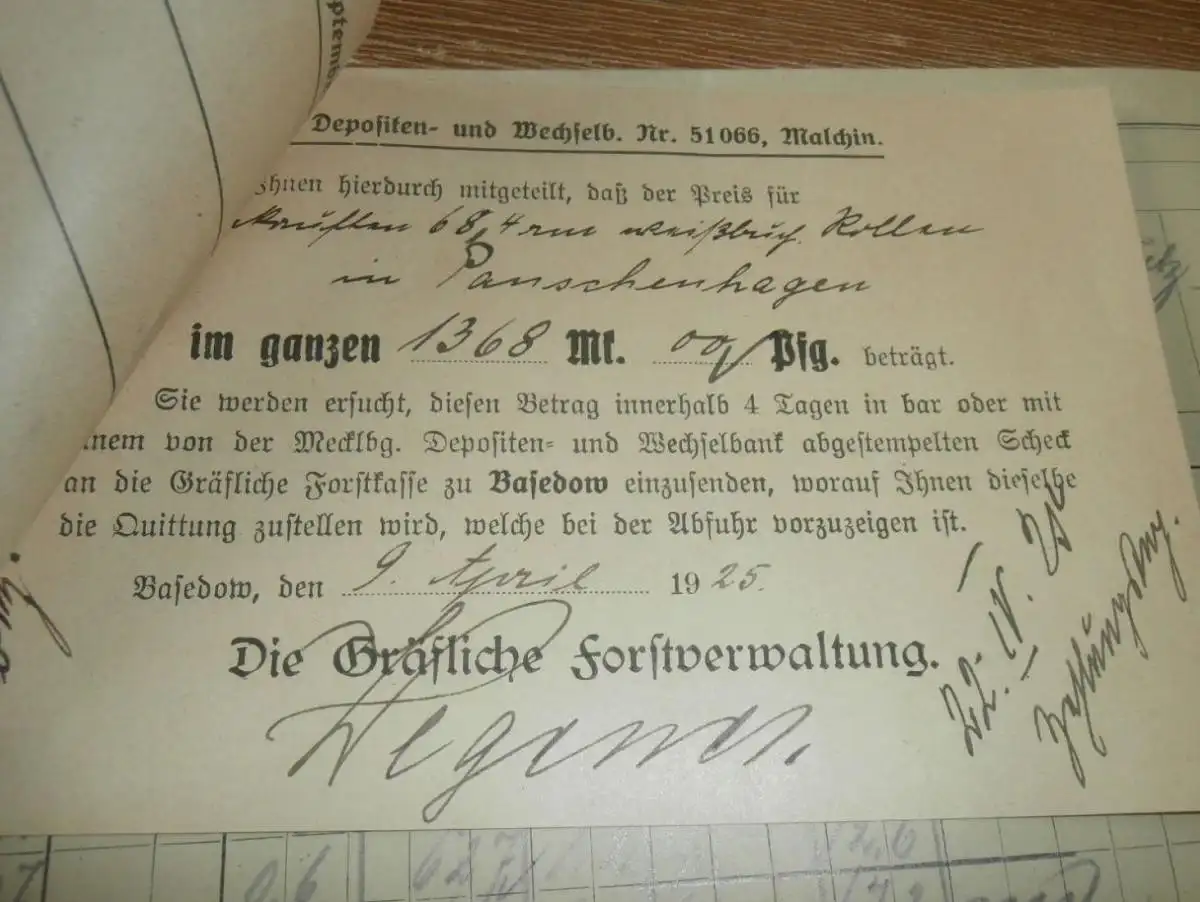 ptemb
Depositen- und Wechselb. Nr. 51066, Malchin.
Ihnen hierdurch mitgeteilt, daß der Preis für
kauften 68,4 rm weißbuch. Rollen
in Panschenhagen
im ganzen 1368 Mk. 00 Pfg. beträgt.
Sie werden ersucht, diesen Betrag innerhalb 4 Tagen in bar oder mit
inem von der Mecklbg. Depositen- und Wechselbank abgestempelten Scheck
an die Gräfliche Forstkasse zu Basedow einzusenden, worauf Ihnen dieselbe
die Quittung zustellen wird, welche bei der Abfuhr vorzuzeigen ist.
Basedow, den 9. April 1925.
Die Gräfliche Forstverwaltung.
22. IV. 25